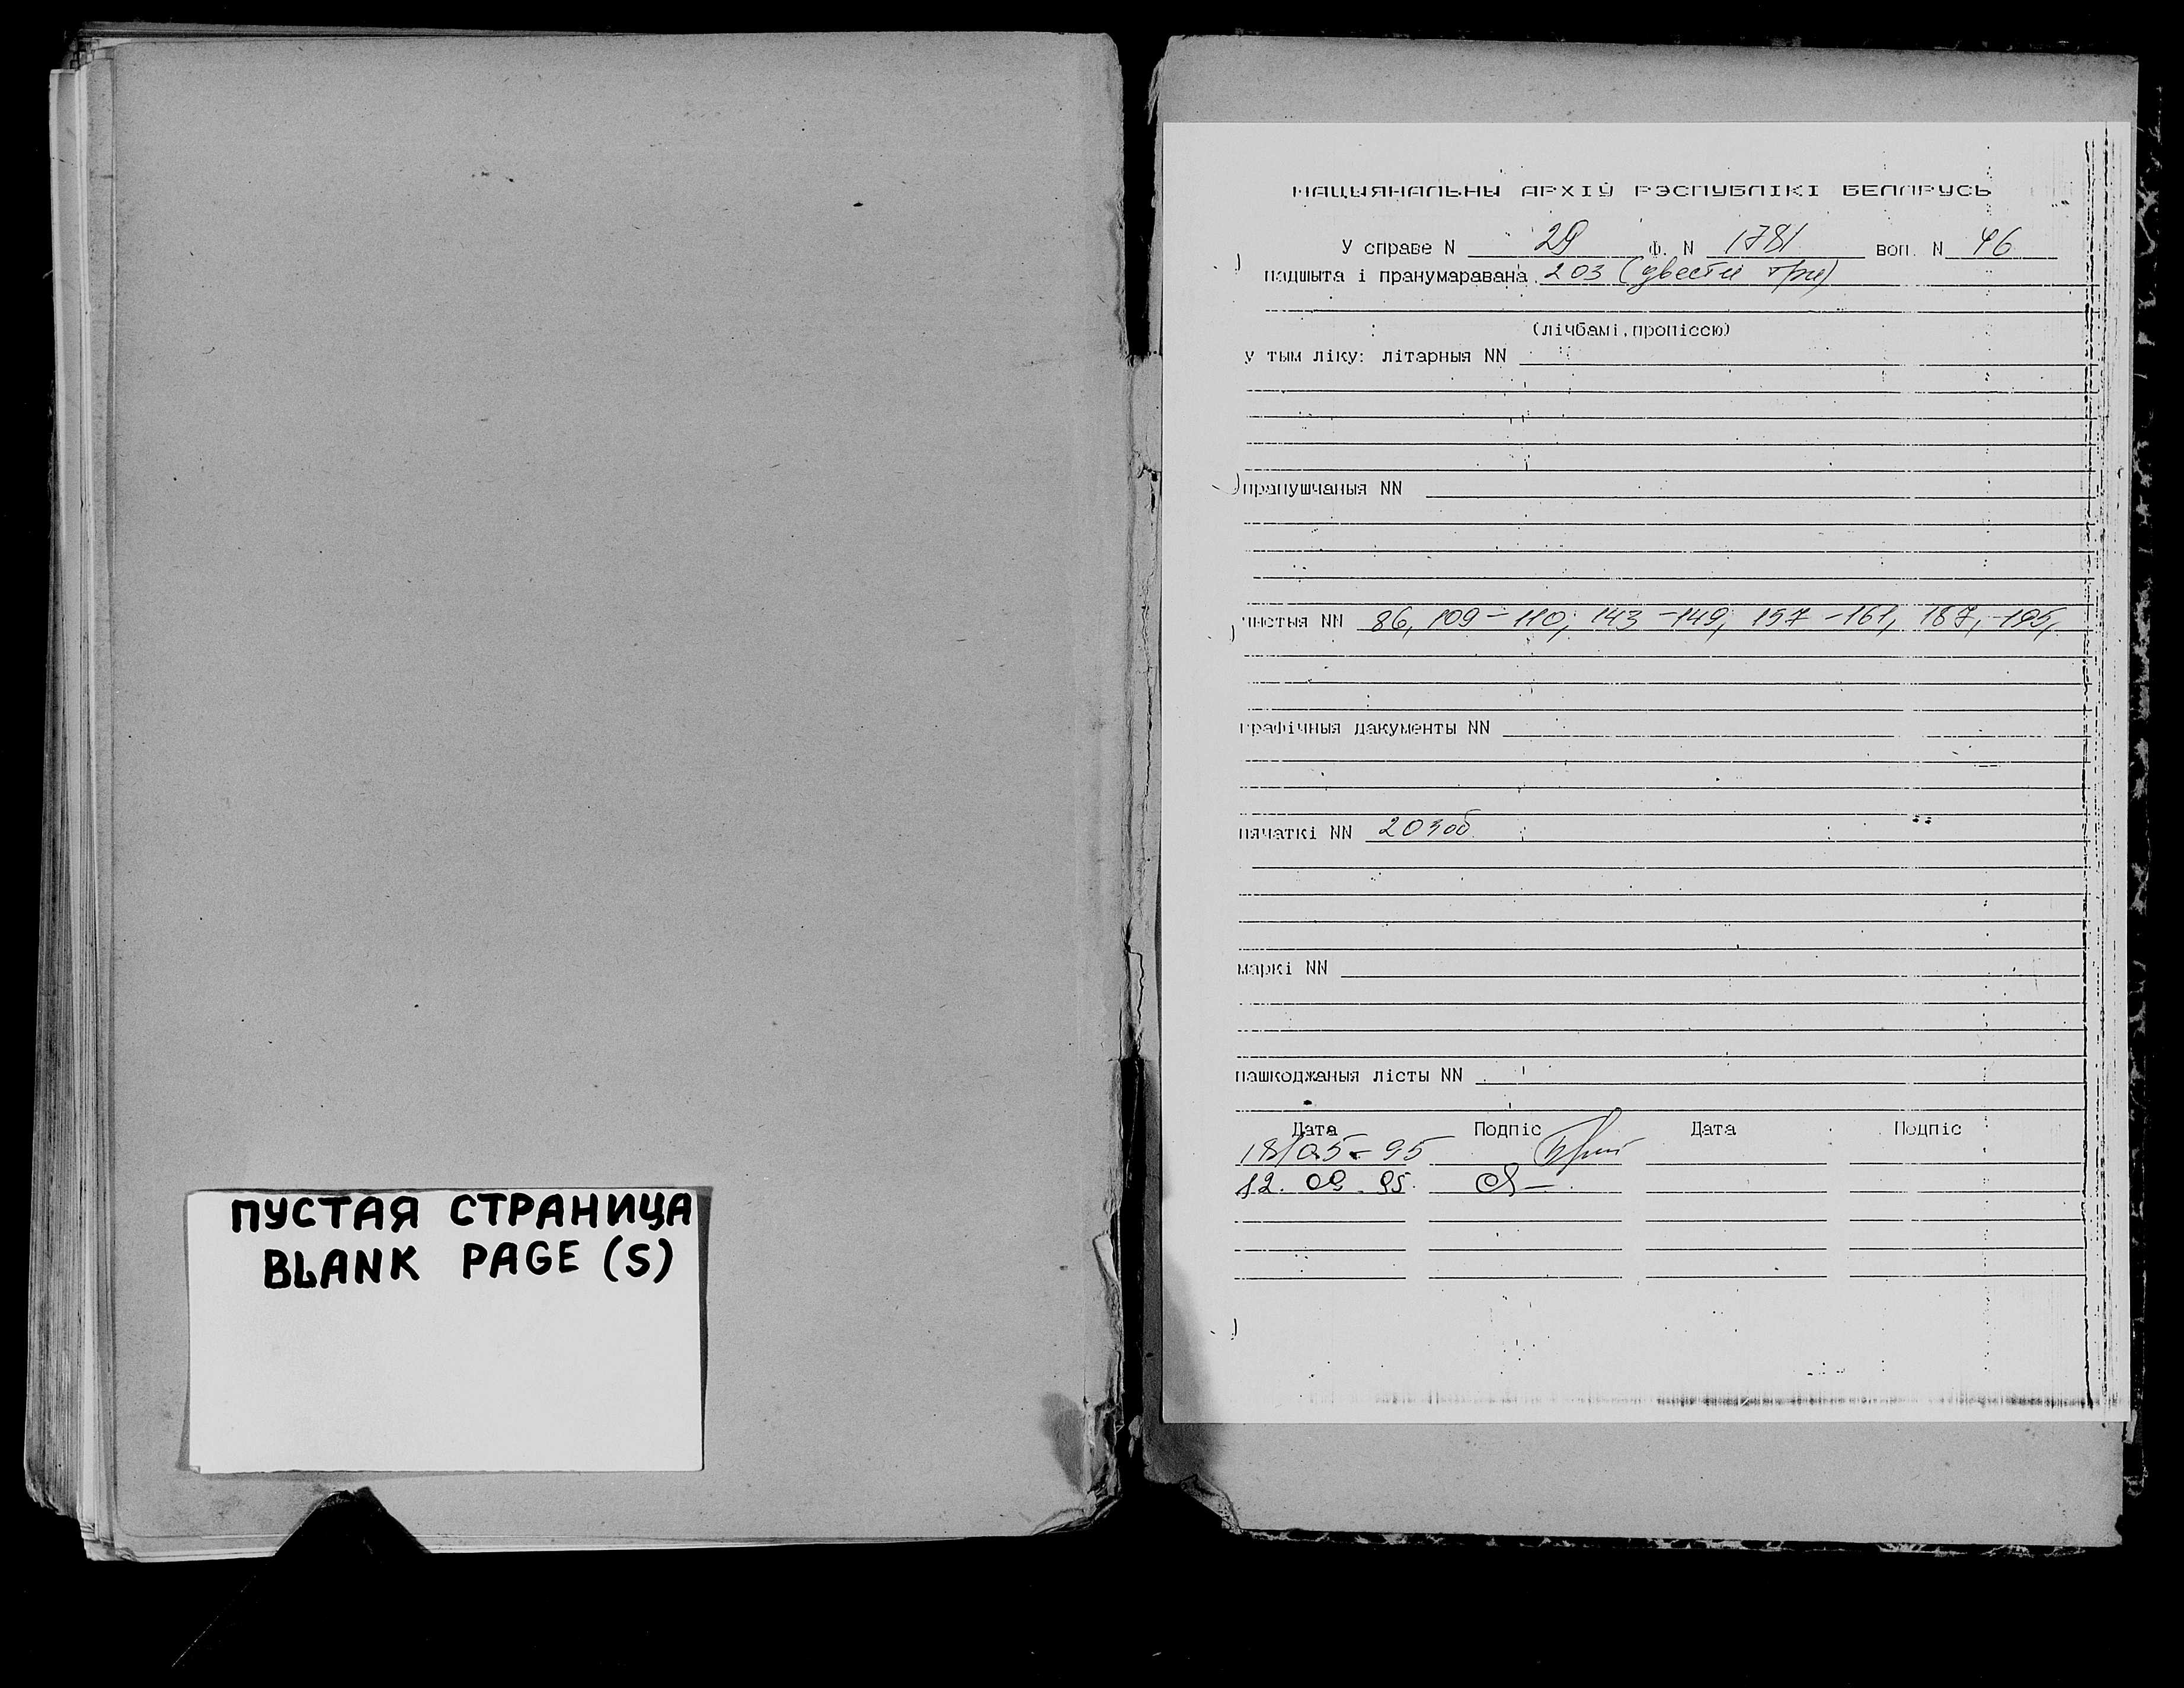 ПУСТАЯ СТРАНИЦА
BLANK PAGE (S)
НАЦЫЯНАЛЬНЫ АРХІЎ РЭСПУБЛІКІ БЕЛАРУСЬ
У справе N 29 Ф. N 1781 воп. N 46
падшыта і пранумаравана 203 (двести три)
(лічбамі, пропіссю)
у тым ліку: літарныя NN
прапушчаныя NN
чыстыя NN 86, 109-110, 143-149, 157-161, 187, 195,
графічныя дакументы NN
пячаткі NN 203об
маркі NN
пашкоджаныя лісты NN
Дата Подпіс Дата Подпіс
18/05-95
12.09.95.